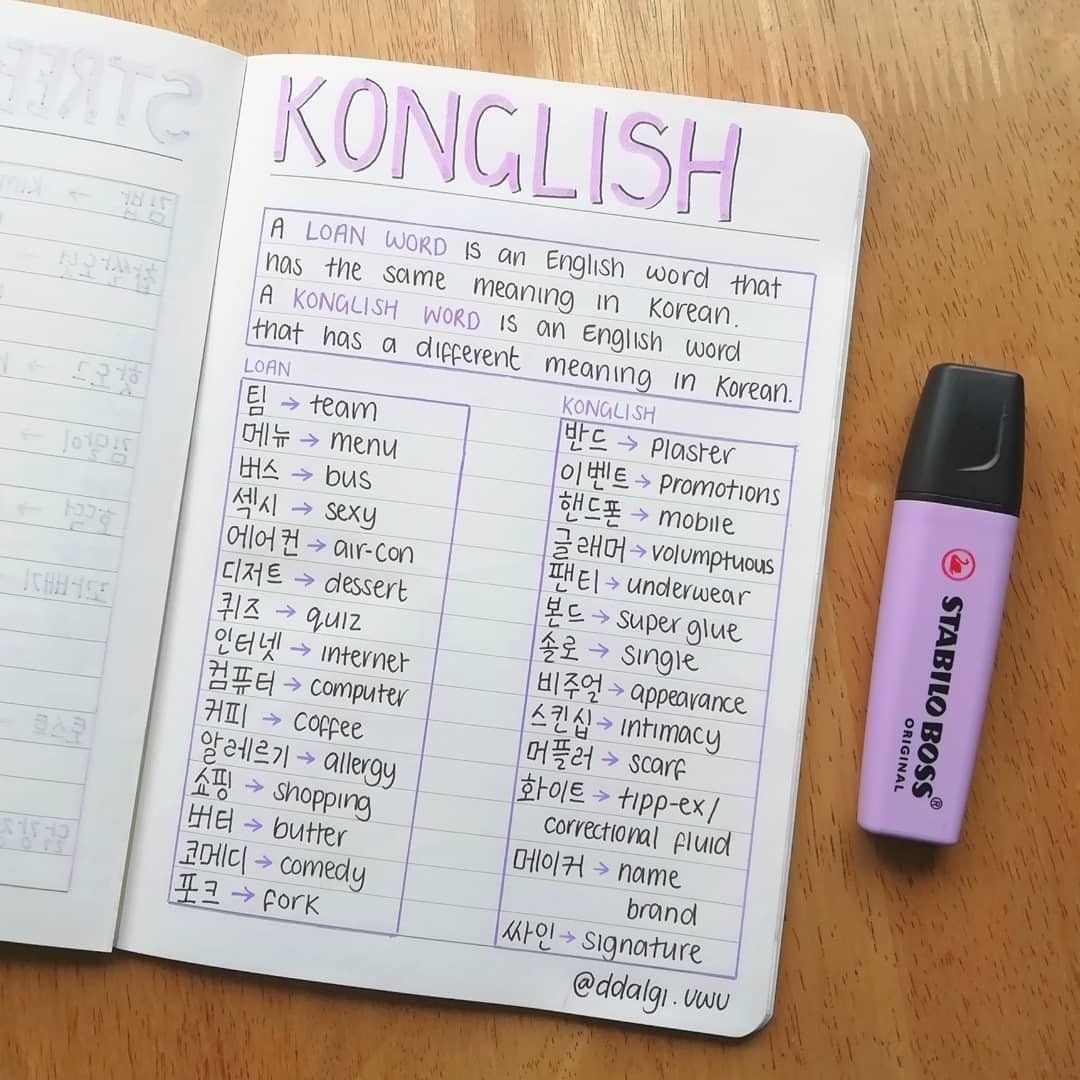 KONGLISH
A LOAN WORD IS an English word that
has the same meaning in Korean.
A KONGLISH WORD IS an English word
that has a different meaning in Korean.
LOAN
팀 → team
메뉴 → menu
버스 → bus
섹시 → sexy
에어컨 → air-con
디저트 → dessert
퀴즈 → quiz
인터넷 → internet
컴퓨터 → computer
커피 → coffee
알레르기 → allergy
쇼핑 → shopping
버터 → butter
코메디 → comedy
포크 → fork
KONGLISH
반드 → plaster
이벤트 → promotions
핸드폰 → mobile
글래머 → volumptuous
팬티 → underwear
본드 → super glue
솔로 → single
비주얼 → appearance
스킨십 → intimacy
머플러 → scarf
화이트 → tipp-ex/
correctional fluid
메이커 → name
brand
싸인 → signature
@ddalgi.uwu
STABILO BOSS®
ORIGINAL